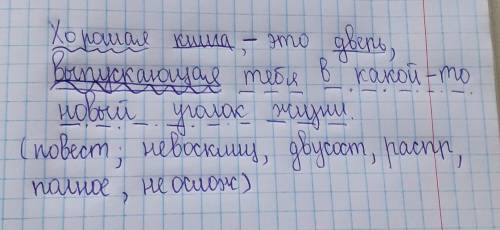 Хорошая книга, - это дверь,
выпускающая тебя в какой-то
новый уголок жизни.
(повест; невосклиц, двусост, распр,
полное, неослож)